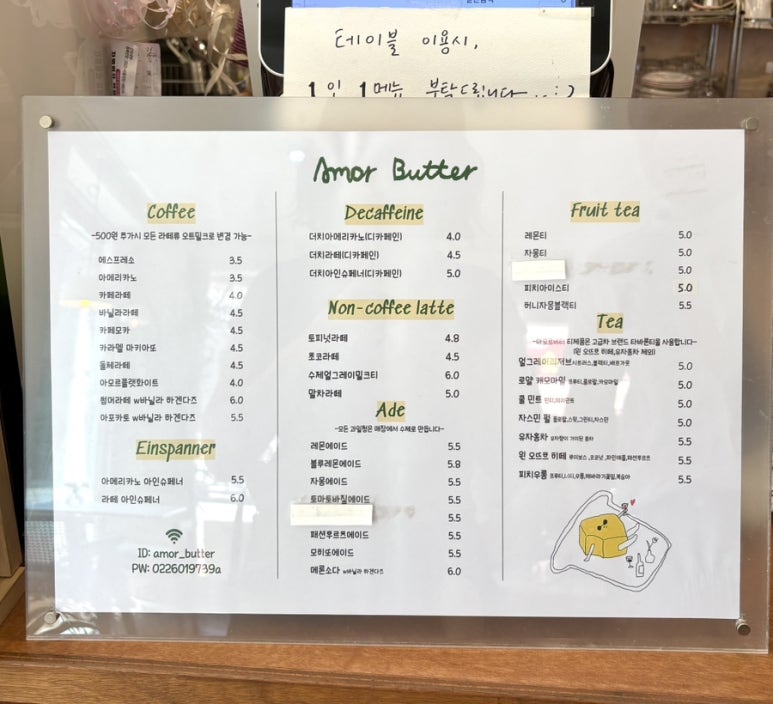 테이블 이용시,
1인 1메뉴 부탁드립니다..:)
Amor Butter
Coffee
-500원 추가시 모든 라떼류 오트밀크로 변경 가능-
에스프레소 3.5
아메리카노 3.5
카페라떼 4.0
바닐라라떼 4.5
카페모카 4.5
카라멜 마키아또 4.5
돌체라떼 4.5
아모르플랫화이트 4.0
썸머라떼 w바닐라 하겐다즈 6.0
아포카토 w바닐라 하겐다즈 5.5
Einspanner
아메리카노 아인슈페너 5.5
라떼 아인슈페너 6.0
ID: amor_butter
PW: 0226019739a
Decaffeine
더치아메리카노(디카페인) 4.0
더치라떼(디카페인) 4.5
더치아인슈페너(디카페인) 5.0
Non-coffee latte
토피넛라떼 4.8
초코라떼 4.5
수제얼그레이밀크티 6.0
말차라떼 5.0
Ade
-모든 과일청은 매장에서 수제로 만듭니다-
레몬에이드 5.5
블루레몬에이드 5.8
자몽에이드 5.5
토마토바질에이드 5.5
5.5
패션후르츠에이드 5.5
모히또에이드 5.5
메론소다 w바닐라 하겐다즈 6.0
Fruit tea
레몬티 5.0
자몽티 5.0
5.0
피치아이스티 5.0
허니자몽블랙티 5.5
Tea
-아모르버터 티제품은 고급차 브랜드 타바론티을 사용합니다-
(윈 오쁘르 히페,유자홍차 제외)
얼그레이리저브 시트러스,블랙티,베르가못 5.0
로얄 캐모마일 프루티,플로랄,카모마일 5.0
쿨 민트 민티 5.0
자스민 펄 플로랄,스윗,그린티,자스민 5.0
유자홍차 유자향이 가미된 홍차 5.5
윈 오쁘르 히페 루이보스,코코넛,파인애플,패션후르츠 5.5
피치우롱 프루티,너티,우롱,해바라기꽃잎,복숭아 5.5